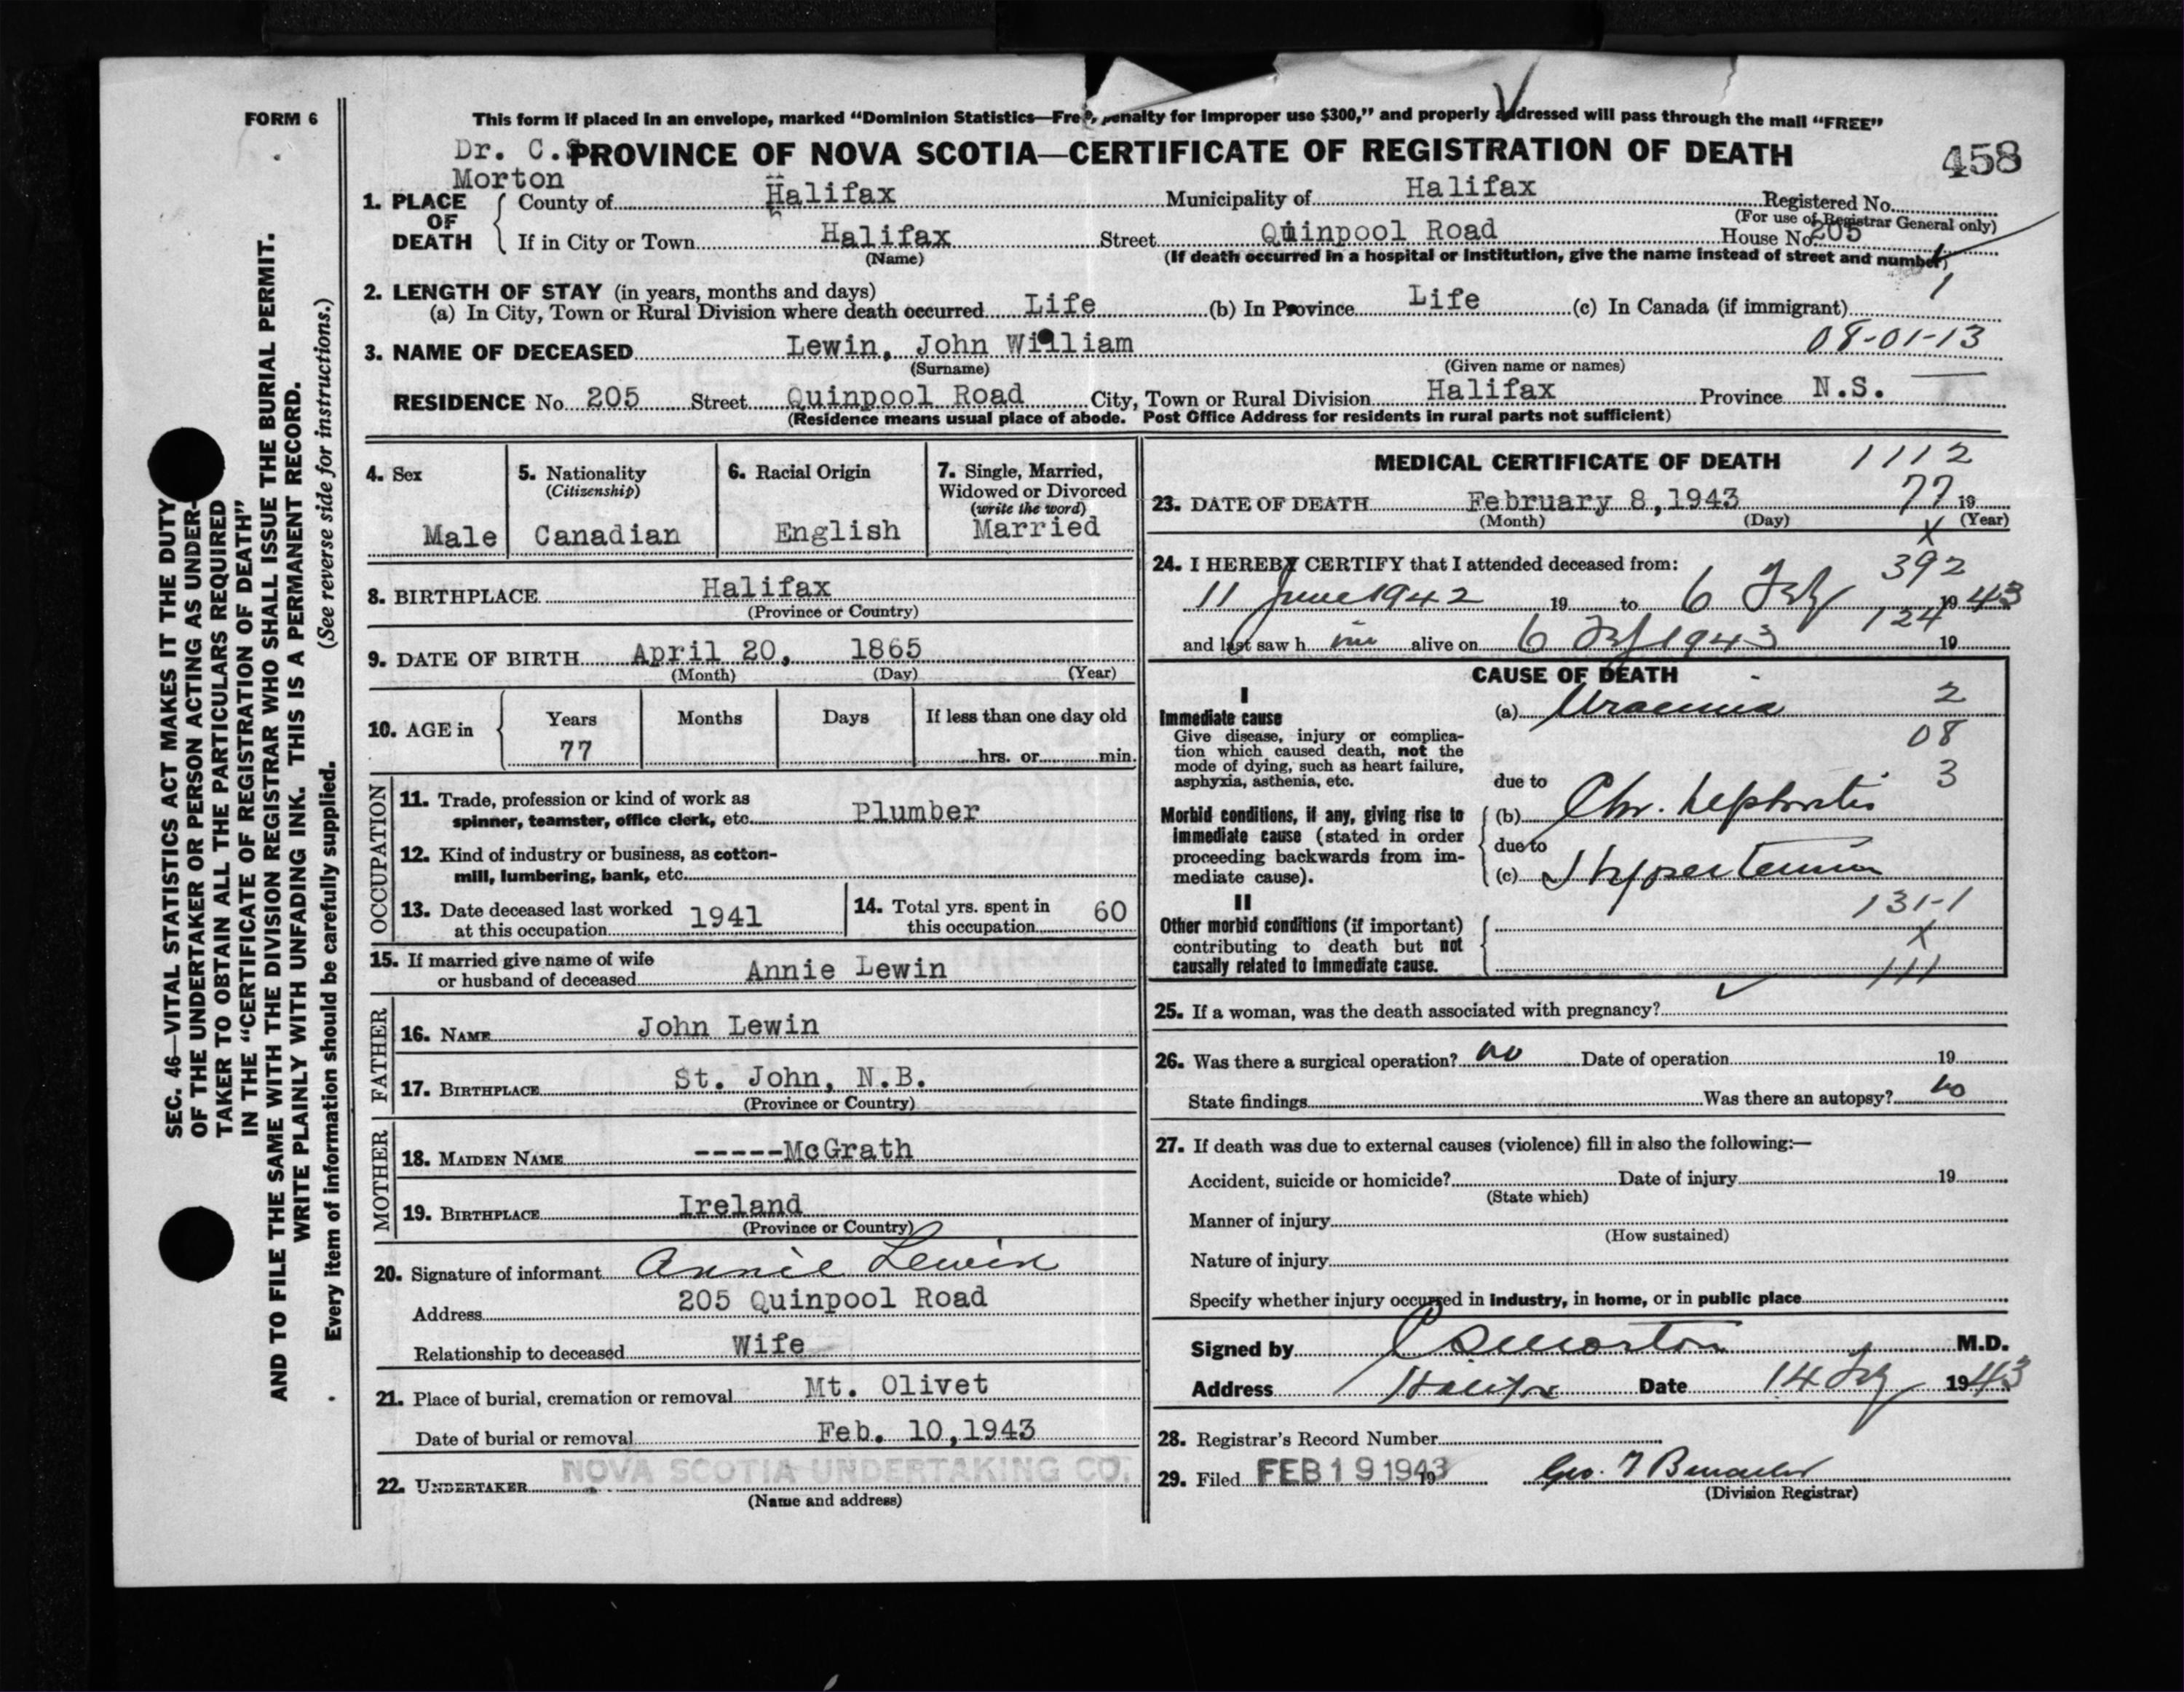 FORM 6
This form if placed in an envelope, marked “Dominion Statistics—Free, penalty for improper use $300,” and properly addressed will pass through the mail “FREE”
Dr. C.S. PROVINCE OF NOVA SCOTIA—CERTIFICATE OF REGISTRATION OF DEATH 458
Morton
1. PLACE OF DEATH County of Halifax Municipality of Halifax Registered No.
(For use of Registrar General only)
If in City or Town Halifax Street Quinpool Road House No. 205
(Name) (If death occurred in a hospital or institution, give the name instead of street and number)
2. LENGTH OF STAY (in years, months and days) 1
(a) In City, Town or Rural Division where death occurred Life (b) In Province Life (c) In Canada (if immigrant)
3. NAME OF DECEASED Lewin, John William 08-01-13
(Surname) (Given name or names)
RESIDENCE No. 205 Street Quinpool Road City, Town or Rural Division Halifax Province N.S.
(Residence means usual place of abode. Post Office Address for residents in rural parts not sufficient)
SEC. 46—VITAL STATISTICS ACT MAKES IT THE DUTY
OF THE UNDERTAKER OR PERSON ACTING AS UNDER-
TAKER TO OBTAIN ALL THE PARTICULARS REQUIRED
IN THE “CERTIFICATE OF REGISTRATION OF DEATH”
AND TO FILE THE SAME WITH THE DIVISION REGISTRAR WHO SHALL ISSUE THE BURIAL PERMIT.
WRITE PLAINLY WITH UNFADING INK. THIS IS A PERMANENT RECORD.
Every item of information should be carefully supplied. (See reverse side for instructions.)
4. Sex
Male
5. Nationality
(Citizenship)
Canadian
6. Racial Origin
English
7. Single, Married,
Widowed or Divorced
(write the word)
Married
8. BIRTHPLACE Halifax
(Province or Country)
9. DATE OF BIRTH April 20, 1865
(Month) (Day) (Year)
10. AGE in Years Months Days If less than one day old
77 hrs. or min.
OCCUPATION
11. Trade, profession or kind of work as
spinner, teamster, office clerk, etc. Plumber
12. Kind of industry or business, as cotton-
mill, lumbering, bank, etc.
13. Date deceased last worked
at this occupation 1941
14. Total yrs. spent in
this occupation 60
15. If married give name of wife
or husband of deceased Annie Lewin
FATHER
16. NAME John Lewin
17. BIRTHPLACE St. John, N.B.
(Province or Country)
MOTHER
18. MAIDEN NAME -----McGrath
19. BIRTHPLACE Ireland
(Province or Country)
20. Signature of informant Annie Lewin
Address 205 Quinpool Road
Relationship to deceased Wife
21. Place of burial, cremation or removal Mt. Olivet
Date of burial or removal Feb. 10, 1943
22. UNDERTAKER NOVA SCOTIA UNDERTAKING CO.
(Name and address)
MEDICAL CERTIFICATE OF DEATH 1112
23. DATE OF DEATH February 8, 1943 77 19
(Month) (Day) (Year)
X
24. I HEREBY CERTIFY that I attended deceased from: 392
11 June 1942 19 to 6 Feby 1943
124
and last saw h im alive on 6 Feb 1943 19
CAUSE OF DEATH
I
Immediate cause (a) Uraemia 2
Give disease, injury or complica-
tion which caused death, not the
mode of dying, such as heart failure,
asphyxia, asthenia, etc.
08
due to 3
Morbid conditions, if any, giving rise to
immediate cause (stated in order
proceeding backwards from im-
mediate cause).
(b) Chr. Nephritis
due to
(c) Hypertension
II 131-1
Other morbid conditions (if important)
contributing to death but not
causally related to immediate cause.
X
111
25. If a woman, was the death associated with pregnancy?
26. Was there a surgical operation? no Date of operation 19
State findings Was there an autopsy? no
27. If death was due to external causes (violence) fill in also the following:—
Accident, suicide or homicide? Date of injury 19
(State which)
Manner of injury
(How sustained)
Nature of injury
Specify whether injury occurred in industry, in home, or in public place
Signed by CS Morton M.D.
Address Halifax Date 14 Feby 1943
28. Registrar's Record Number
29. Filed FEB 19 1943 19 Geo. T
(Division Registrar)